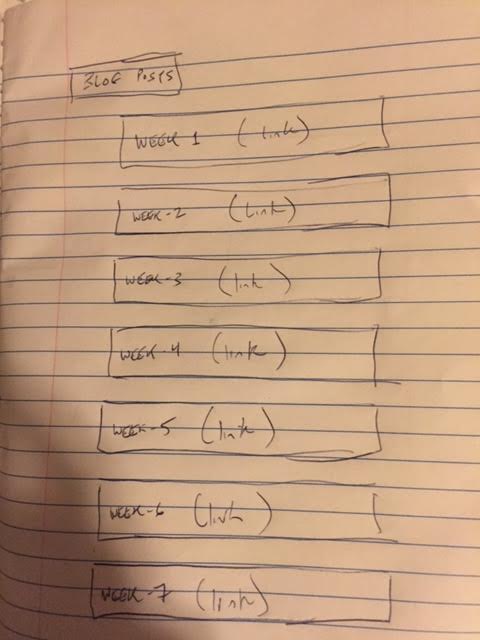 BLOG POSTS
WEEK 1 (link)
WEEK-2 (Link)
WEEK-3 (link)
WEEK-4 (link)
WEEK-5 (link)
WEEK-6 (link)
WEEK-7 (link)